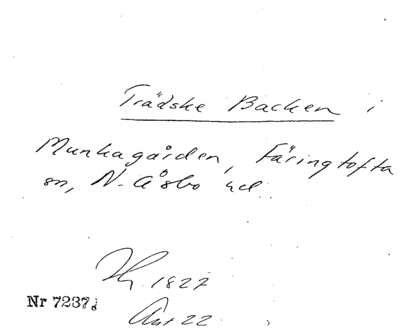 Trädske Backen i
Munkagården, Färingtofta
sn, N. Åsbo hd.
1827
Nr 7237
22